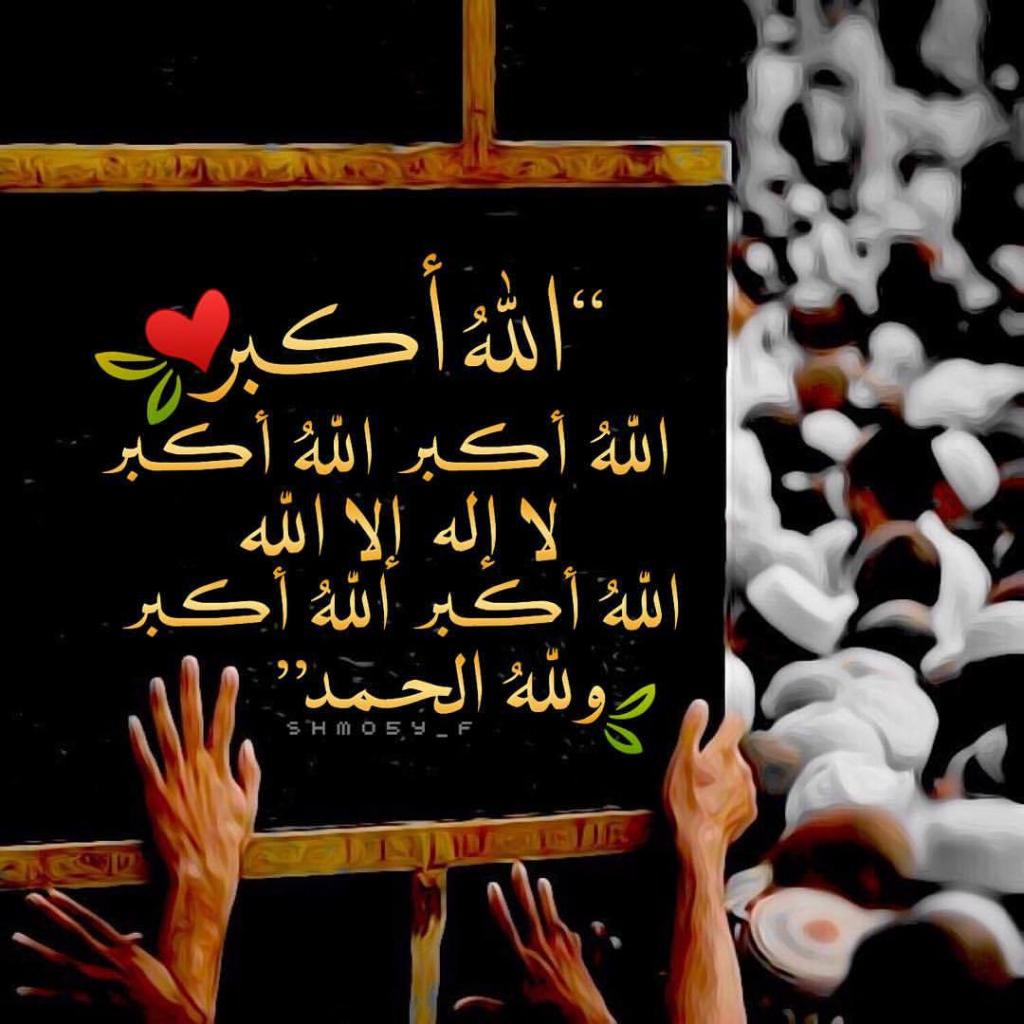 “اللهُ أكبر
اللهُ أكبر اللهُ أكبر
لا إله إلا الله
اللهُ أكبر اللهُ أكبر
وللهُ الحمد”
SHMO5Y_F